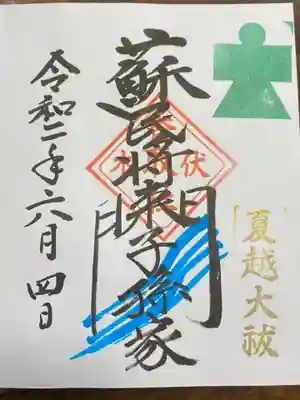 夏越大祓
蘇民将来子孫家門
令和二年六月四日